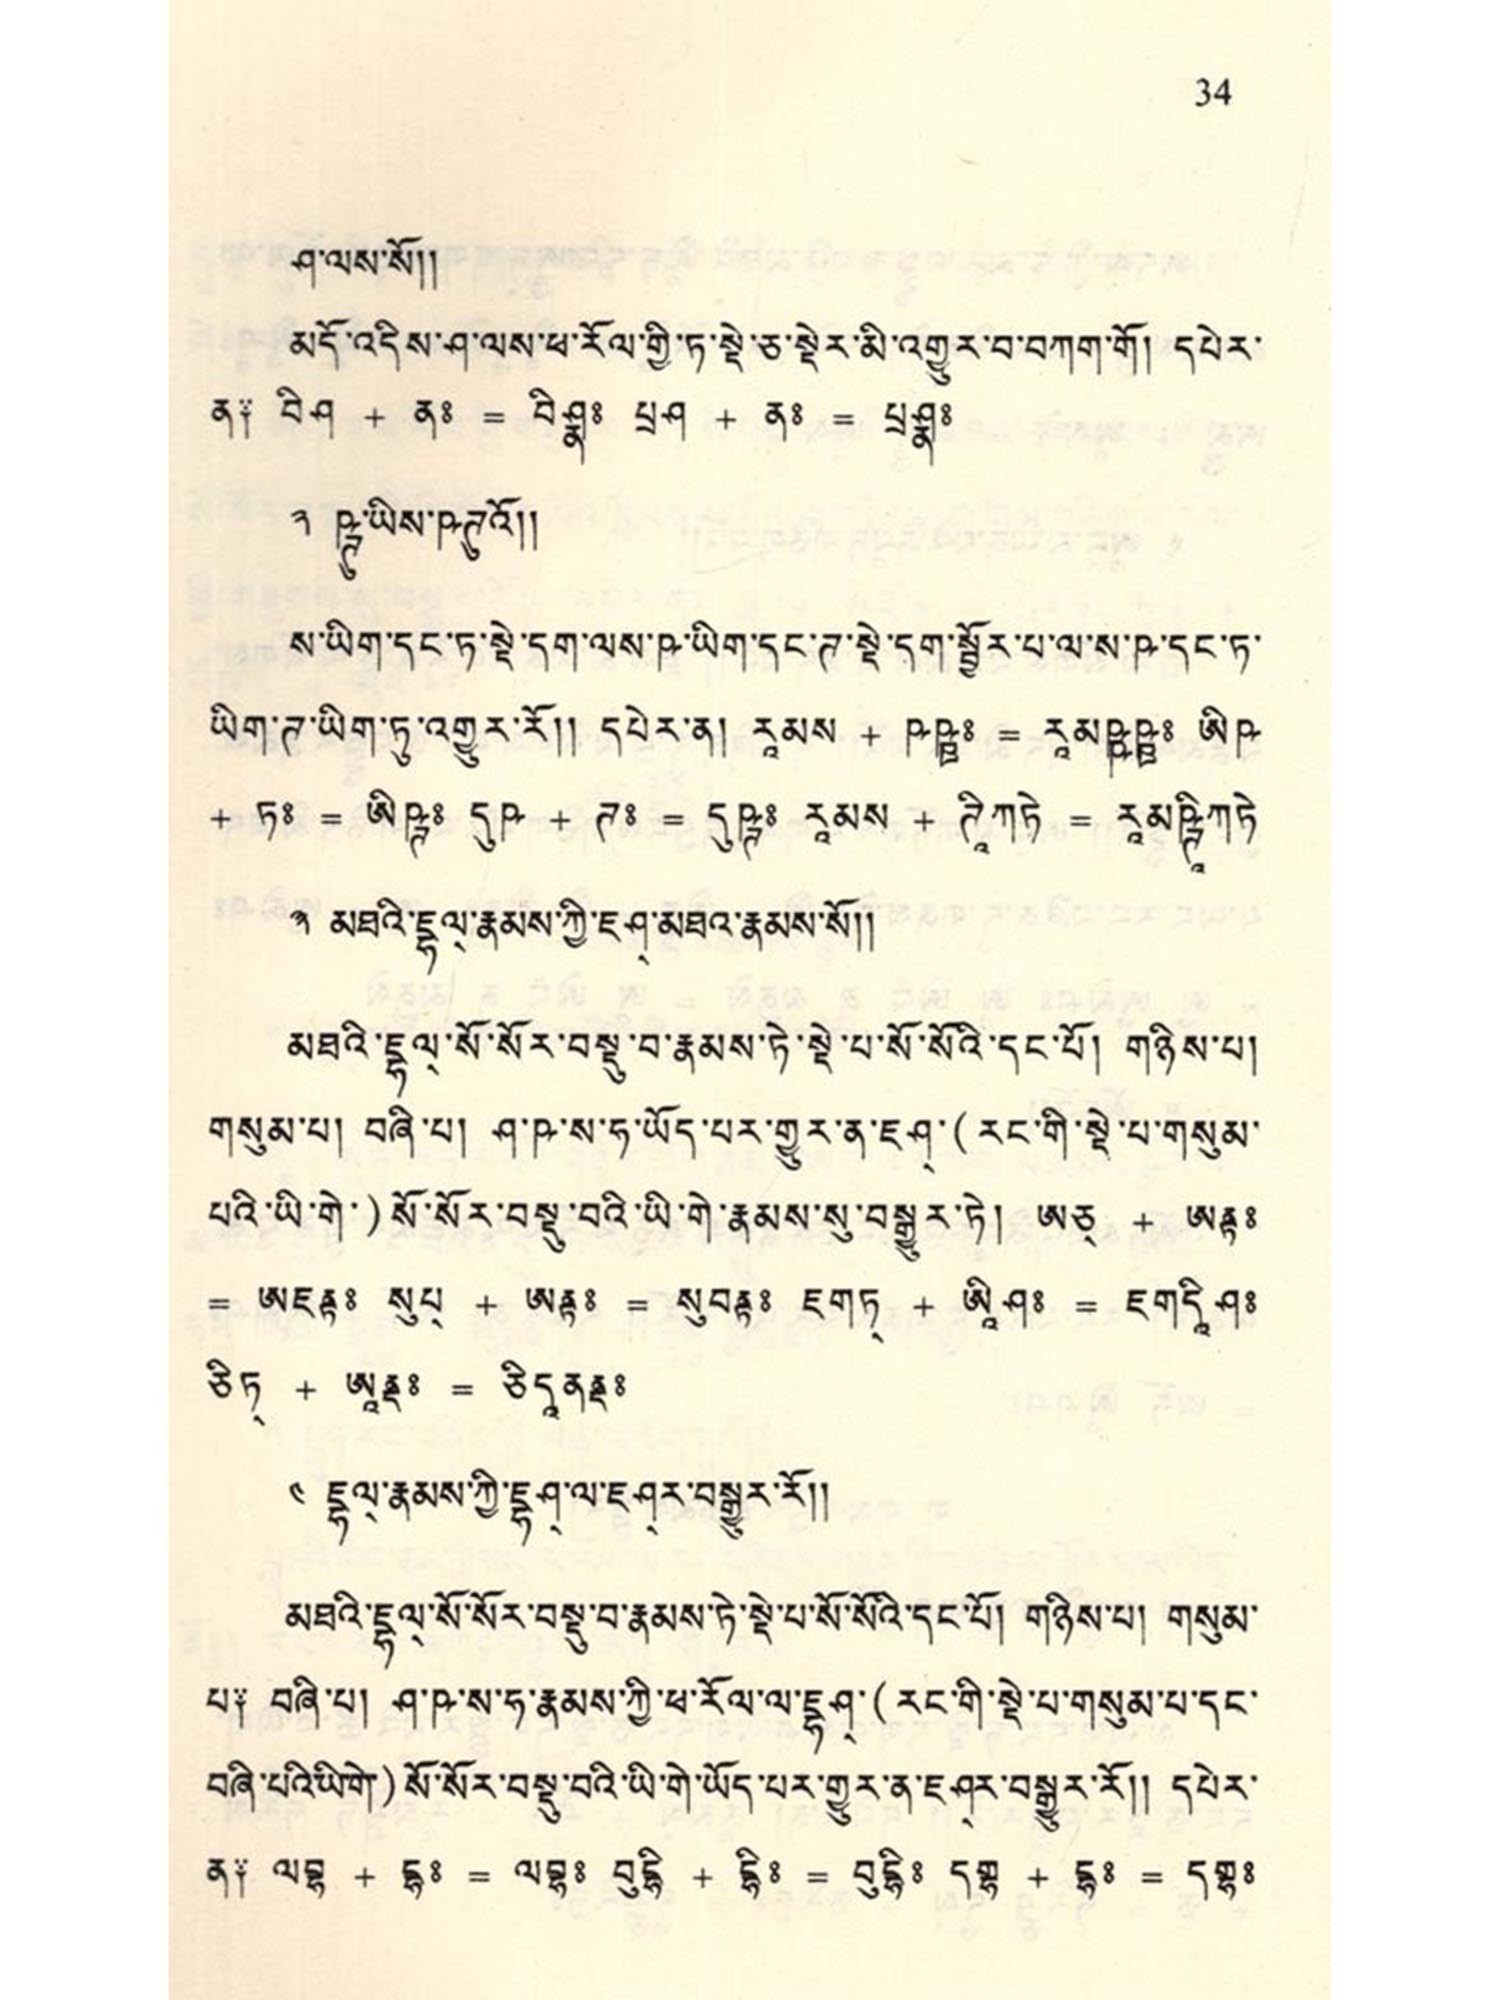 34
ཤ་ལས་སོ།།
མདོ་འདིས་ཤ་ལས་ཕ་རོལ་གྱི་ཏ་སྡེ་ཅ་སྡེར་མི་འགྱུར་བ་བཀག་གོ། དཔེར་
ན༑ བིཤ + ནཿ = བིཤྣཿ པྲཤ + ནཿ = པྲཤྣཿ
༢ ཥྚུ་ཡིས་ཥྚུའོ།།
ས་ཡིག་དང་ཏ་སྡེ་དག་ལས་ཥ་ཡིག་དང་ཊ་སྡེ་དག་སྦྱོར་པ་ལ་ས་ཥ་དང་ཏ་
ཡིག་ཊ་ཡིག་ཏུ་འགྱུར་རོ།། དཔེར་ན། རཱམས + ཥཥྛཿ = རཱམཥྵཥྛཿ ཨིཥ
+ ཏཿ = ཨིཥྚཿ དུཥ + ཊཿ = དུཥྚཿ རཱམས + ཊཱིཀཏེ = རཱམཥྚཱིཀཏེ
༣ མཐའི་ཛྷལ྄་རྣམས་ཀྱི་ཛཤ྄་མཐའ་རྣམས་སོ།།
མཐའི་ཛྷལ྄་སོ་སོར་བསྡུ་བ་རྣམས་ཏེ་སྡེ་པ་སོ་སོའི་དང་པོ། གཉིས་པ།
གསུམ་པ། བཞི་པ། ཤ་ཥ་ས་ཧ་ཡོད་པར་གྱུར་ན་ཛཤ྄་(རང་གི་སྡེ་པ་གསུམ་
པའི་ཡི་གེ་)སོ་སོར་བསྡུ་བའི་ཡི་གེ་རྣམས་སུ་བསྒྱུར་ཏེ། ཨཅ྄ + ཨནྟཿ
= ཨཛནྟཿ སུཔ྄ + ཨནྟཿ = སུབནྟཿ ཛགཏ྄ + ཨཱིཤཿ = ཛགདཱིཤཿ
ཙིཏ྄ + ཨཱནནྡཿ = ཙིདཱནནྡཿ
༤ ཛྷལ྄་རྣམས་ཀྱི་ཛྷཤ྄་ལ་ཛཤ྄ར་བསྒྱུར་རོ།།
མཐའི་ཛྷལ྄་སོ་སོར་བསྡུ་བ་རྣམས་ཏེ་སྡེ་པ་སོ་སོའི་དང་པོ། གཉིས་པ། གསུམ་
པ༑ བཞི་པ། ཤ་ཥ་ས་ཧ་རྣམས་ཀྱི་ཕ་རོལ་ལ་ཛྷཤ྄་(རང་གི་སྡེ་པ་གསུམ་པ་དང་
བཞི་པའི་ཡི་གེ་)སོ་སོར་བསྡུ་བའི་ཡི་གེ་ཡོད་པར་གྱུར་ན་ཛཤ྄ར་བསྒྱུར་རོ།། དཔེར་